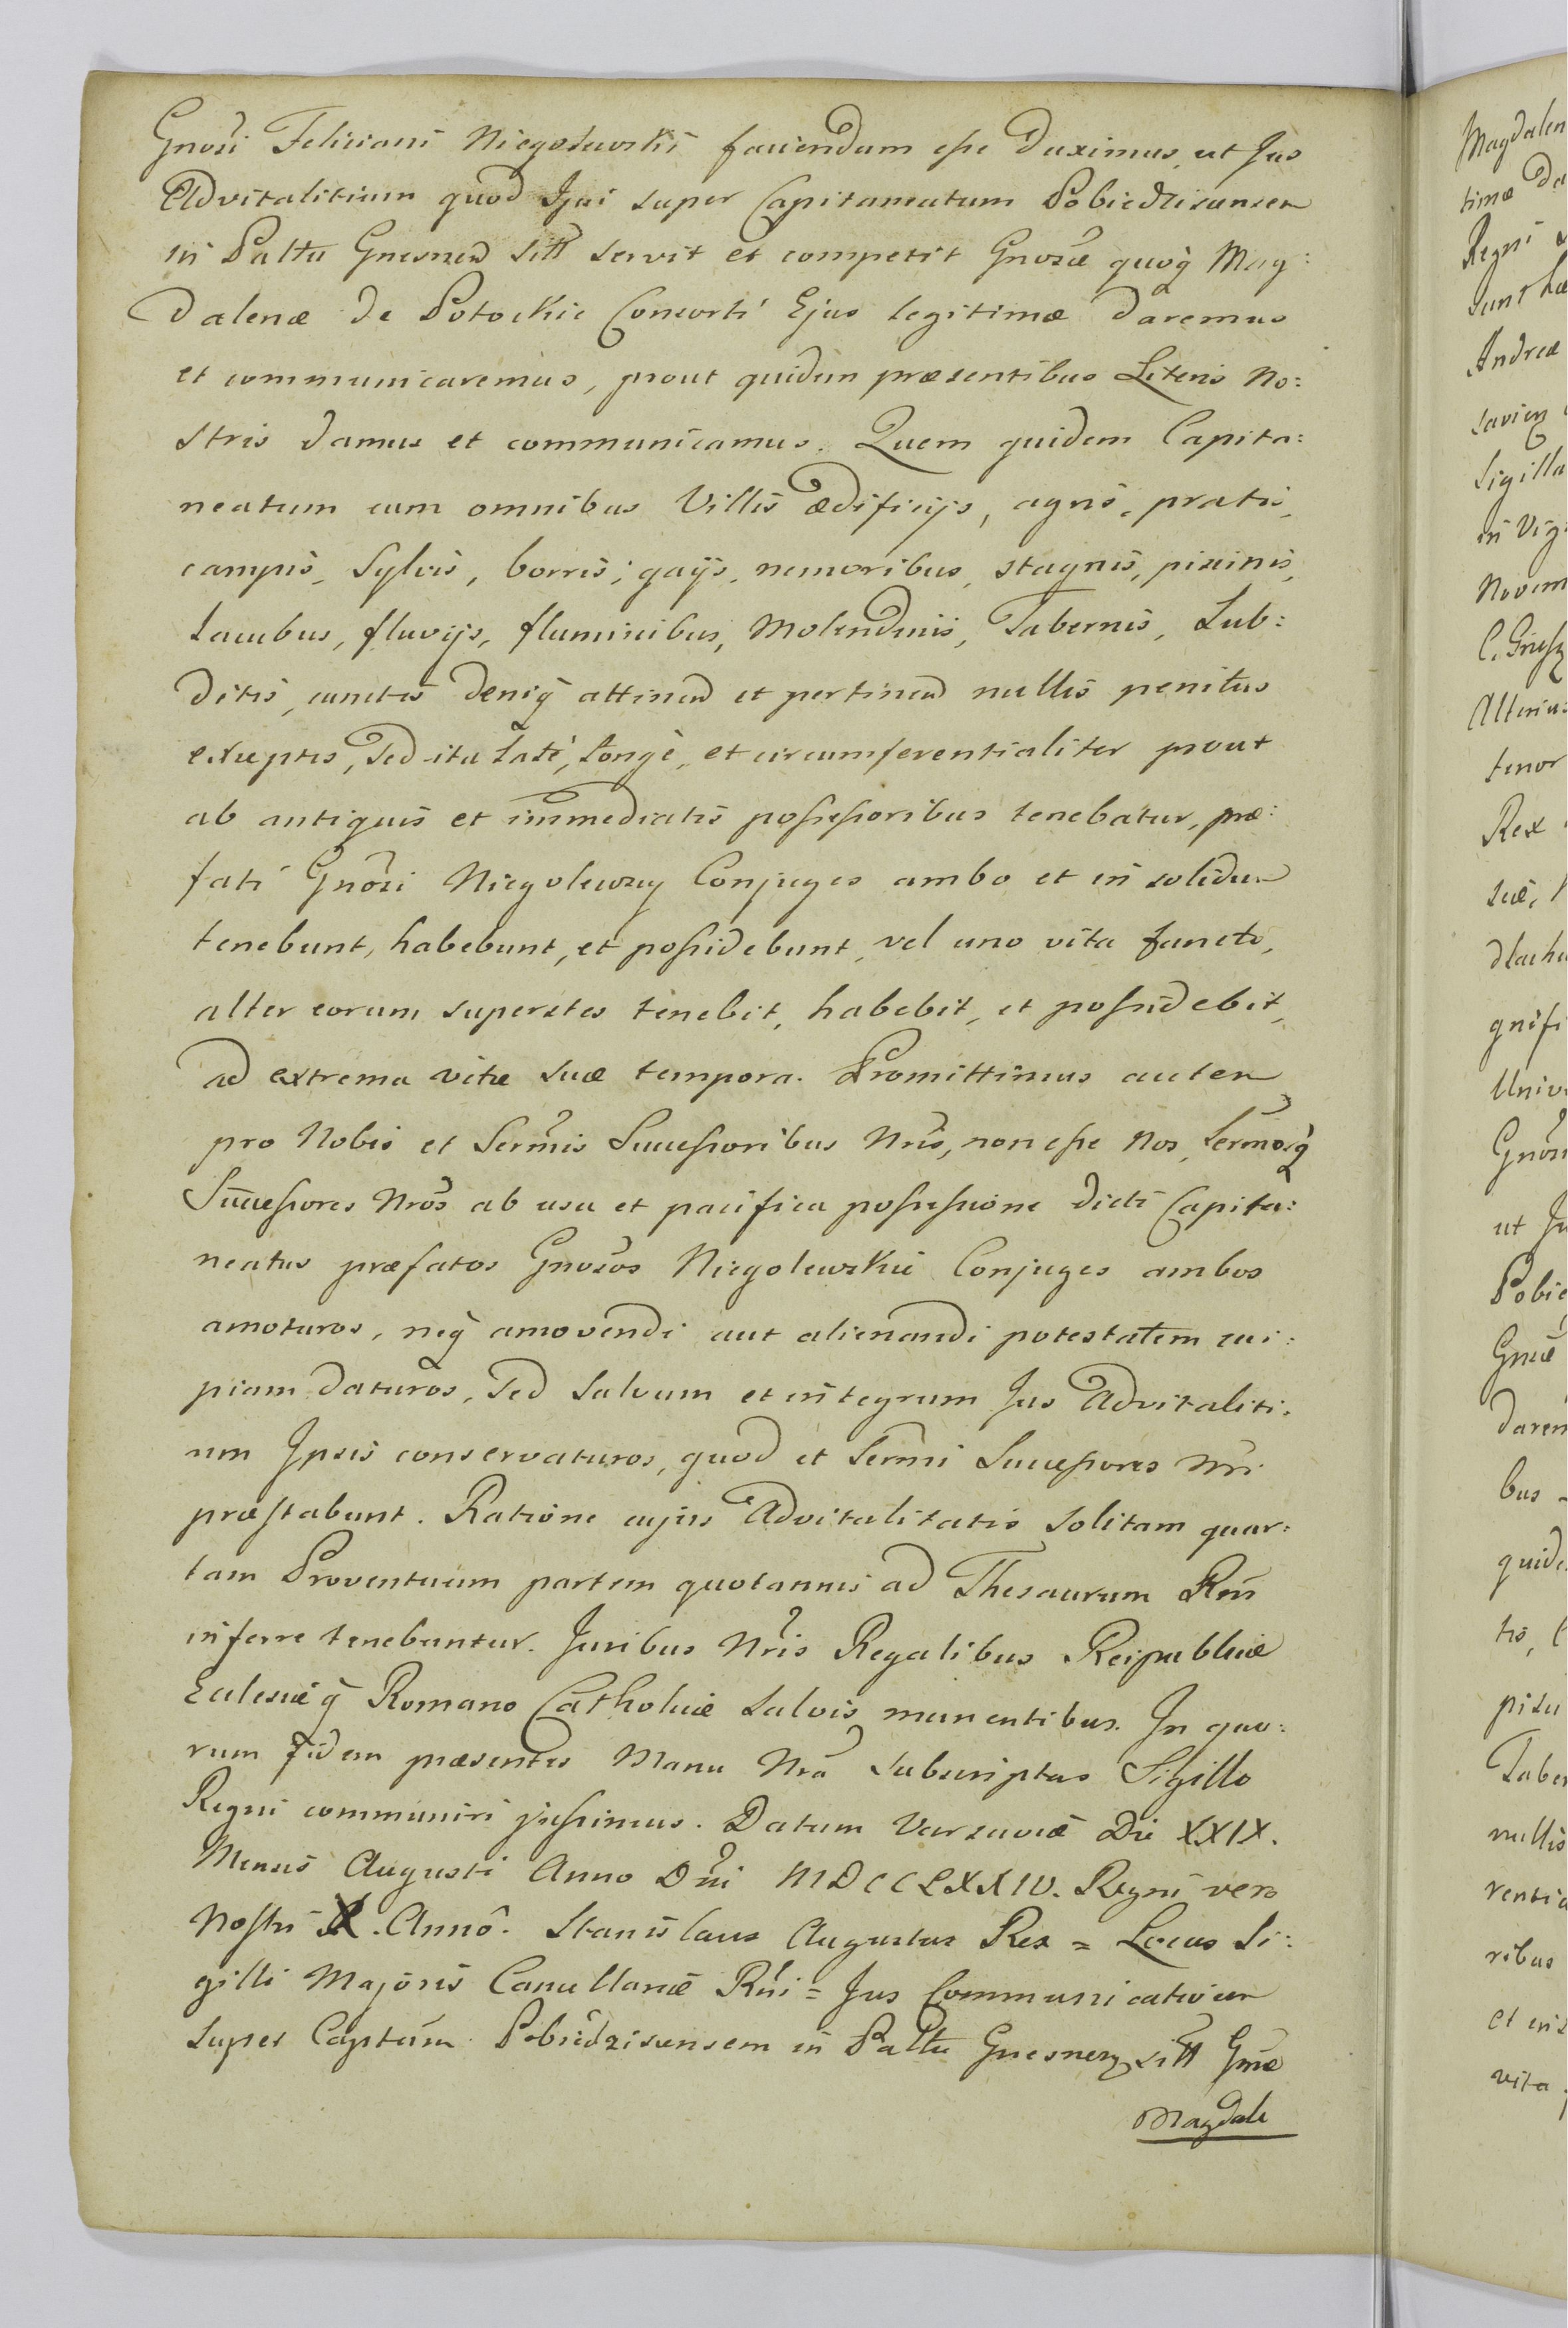 Gnosi Feliciani Niegolewski faciendum esse Duximus, ut Jus
Advitalitium quod Ipsi super Capitaneatum Pobiedziscensem
in Palttu Gnesnen sitt servit et competit Gnosæ quoq̃ Mag:
dalenæ de Potockie Consorti Ejus legitimæ daremus
et communicaremus, prout quidem præsentibus Literis No:
stris damus et communicamus. Quem quidem Capita:
neatum cum omnibus Villis ædificijs, agris, pratis,
campis, Sylvis, borris, gajis, nemoribus, stagnis, piscinis,
Lacubus, fluvijs, fluminibus, Molendinis, Tabernis, Sub:
ditis, cunctis deniq̃ attinen et pertinen nullis penitus
exceptis, Sed ita latè, longè, et circumferentialiter prout
ab antiquis et immediatis possessoribus tenebatur, præ:
fati Gnosi Niegolewscy Conjuges ambo et in solidum
tenebunt, habebunt, et possidebunt, vel uno vita functo,
alter eorum superstes tenebit, habebit, et possidebit,
ad extrema vitæ suæ tempora. Promittimus autem
pro Nobis et Sermis Successoribus Nris, non esse Nos, Sermosq̃
Successores Nros ab usu et pacifica possessione dicti Capita:
neatus præfatos Gnosos Niegolewskie Conjuges ambos
amoturos, neq̃ amovendi aut alienandi potestatem cui:
piam daturos, Sed Salvum et integrum Jus Advitaliti:
um Ipsis conservaturos, quod et Sermi Successores Nri
præstabunt. Ratione cujus Advitalitatis Solitam quar:
tam Proventuum partem quotannis ad Thesaurum Rni
inferre tenebuntur. Juribus Nris Regalibus Reipublicæ
Eclesiæq̃ Romano Catholicæ Salvis manentibus. In quo:
rum fidem præsentes Manu Nra Subscriptas Sigillo
Regni communiri jussimus. Datum Varsaviæ Die XXIX.
Mensis Augusti Anno Dni MDCCLXXIV. Regni vero
Nostri X. Anno. Stanislaus Augustus Rex = Locus Si:
gilli Majoris Cancellariæ Rni = Jus Communicativum
super Captum Pobiedziscensem in Palttu Gnesnen sitt Gnæ
Magdale
Magdalen
timæ Da
Regni
sunt hæ
Andreæ
Sigilla
in Vig
Novem
Alterius
tenor
Rex
gnifi
Univ
Gnosi
ut Ju
Pobie
Gnæ
darem
bus
quide
tis,
Taber
nullis
rentia
ribus
et in s
vita